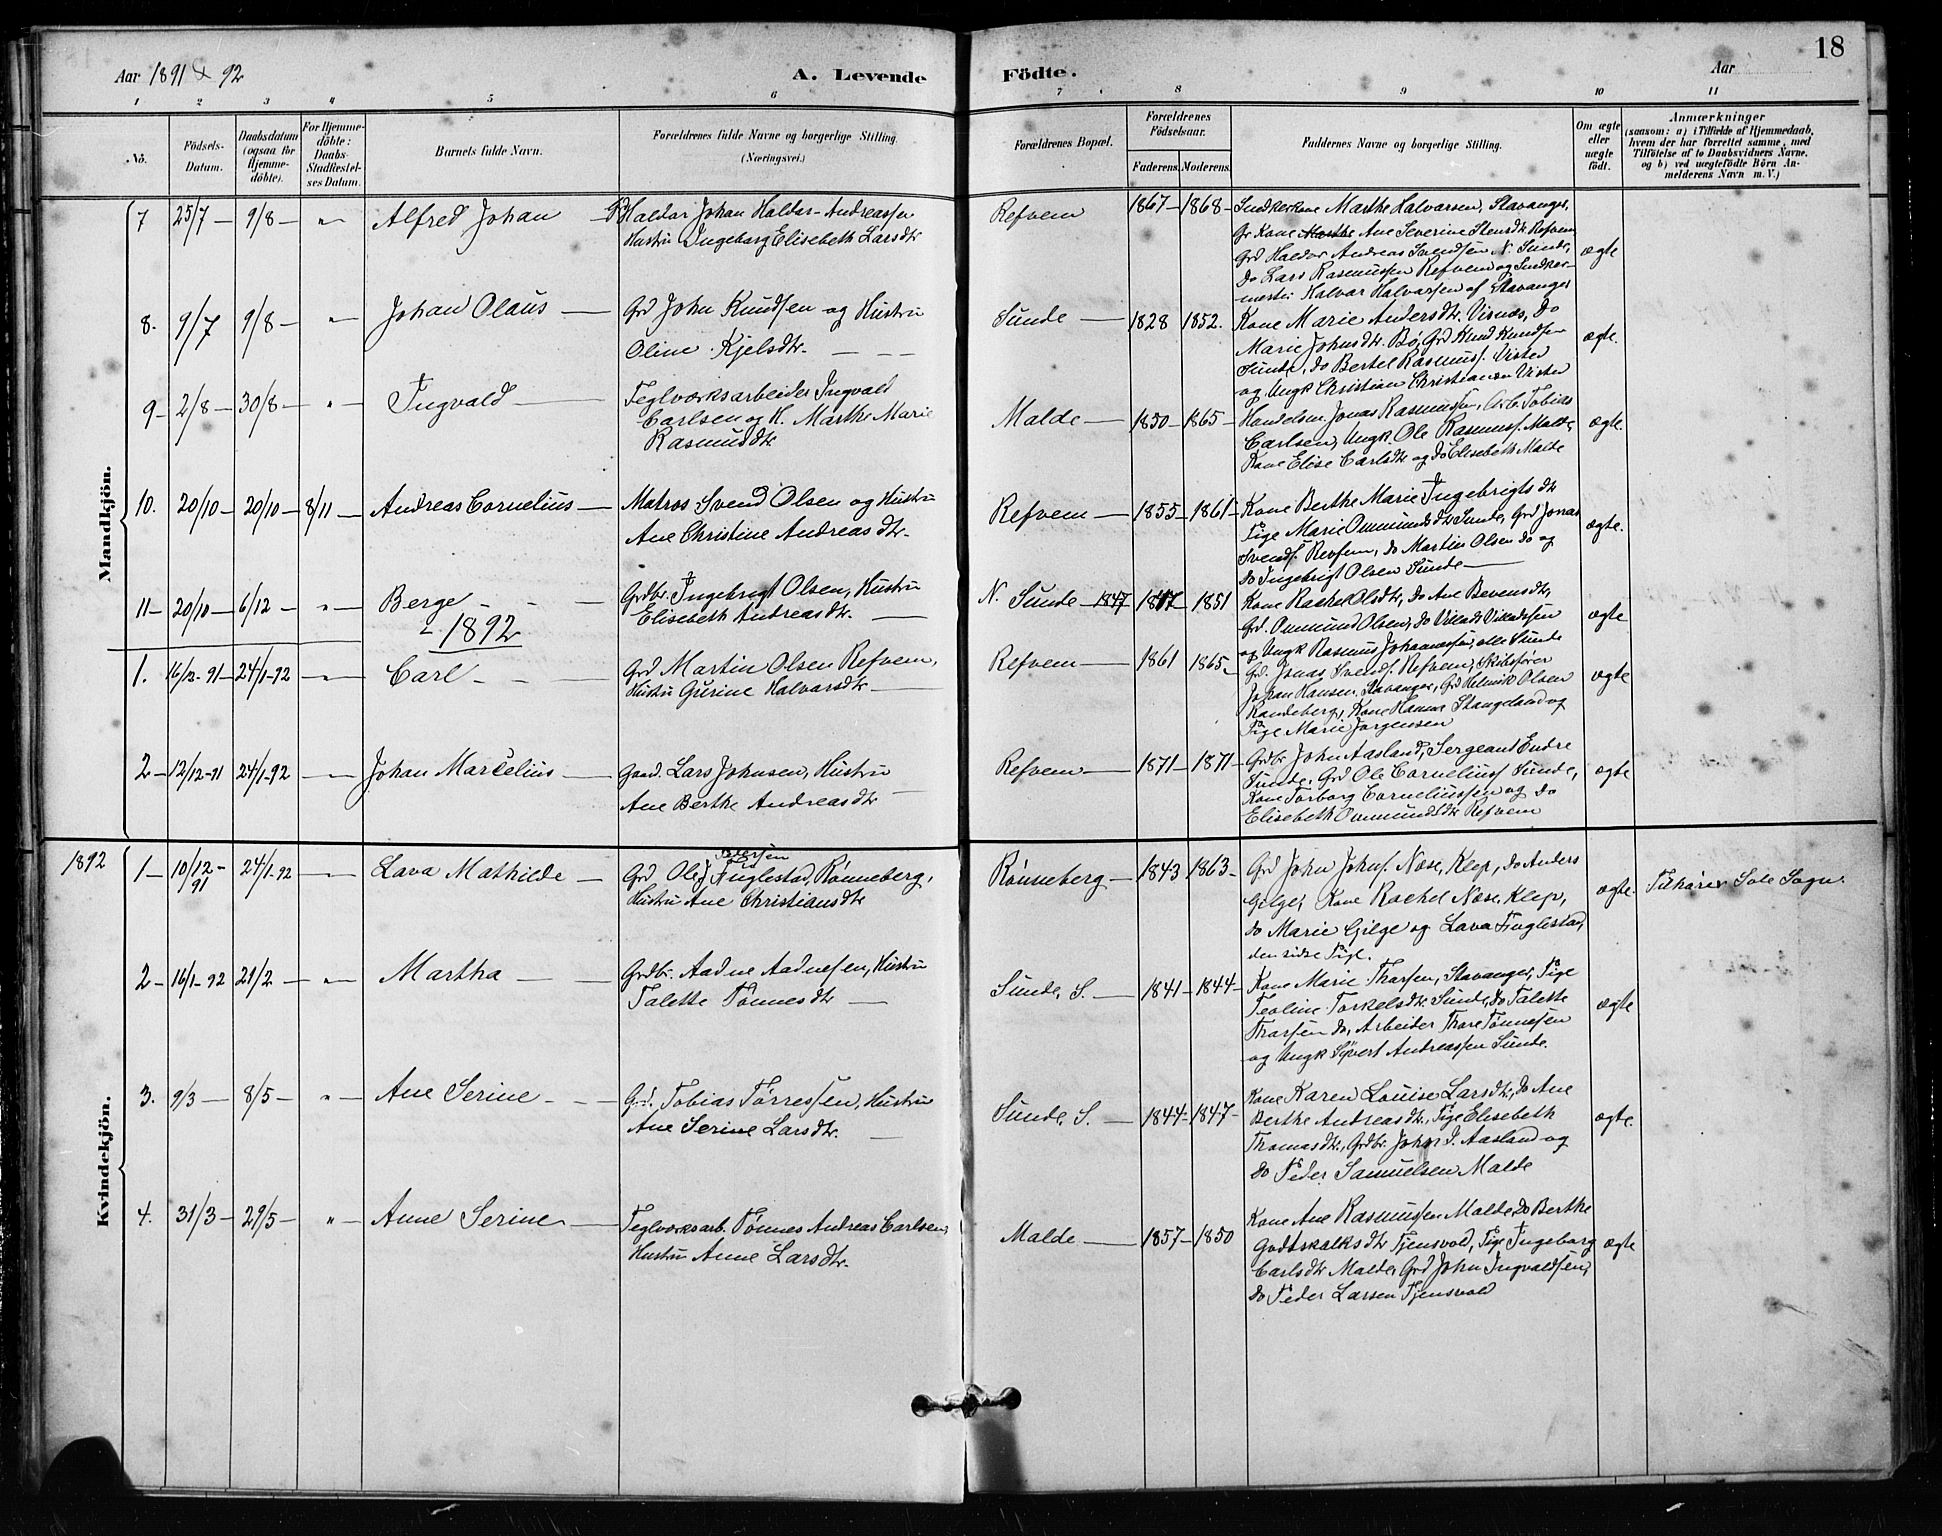 Aar 1891 & 92
A. Levende Födte.
Aar
18
1 2 3 4 5 6 7 8 9 10 11
No.
Födsels-Datum.
Daabsdatum (ogsaa for Hjemme-döbte).
For Hjemme-döbte: Daabs-Stadfæstel-ses Datum.
Barnets fulde Navn.
Forældrenes fulde Navne og borgerlige Stilling. (Næringsvei.)
Forældrenes Bopæl.
Forældrenes Födselsaar.
Faderens. Moderens.
Faddernes Navne og borgerlige Stilling.
Om ægte eller uægte födt.
Anmærkninger
(saasom: a) i Tilfælde af Hjemmedaab,
hvem der har forrettet samme, med
Tilföielse af to Daabsvidners Navne,
og b) ved uægtefödte Börn An-
melderens Navn m. V.)
Mandkjön.
7 25/7 — 9/8 — " — Alfred Johan — Gd Haldor Johan Haldor-Andreassen
Hustru Ingeborg Elisebeth Larsdtr
Refvem 1867 — 1868 — Snedkerkone Marthe Halvarsen, Stavanger,
Gr Kone Marthe Ane Severine Stensdtr Refvem
Grd Haldor Andreas Svendsen N. Sunde,
Do Lars Rasmussen Refvem og Snedker-
mester Halvar Halvarsen af Stavanger
ægte
8. 9/7 9/8 — " — Johan Olaus — Grd John Knudsen og Hustru
Oline Kjelsdtr. — — —
Sunde — 1828 1852. Kone Marie Andersdtr. Visnæs, Do
Marie Johnsdtr. Bø, Grd Knud Knudsen
Sunde, Do Bertel Rasmuss. Viste
og Ungk Christian Christiansen Viste
ægte.
9 — 2/8 — 30/8 — " — Ingvald — Teglværksarbeider Ingvald
Carlsen og H. Marthe Marie
Rasmusdtr
Malde — 1850 — 1865 — Handelsm. Jonas Rasmussen, Arb. Tobias
Carlsen, Ungk. Ole Rasmuss. Malde,
Kone Elise Carlsdtr og Do Elisebeth Malde
ægte.
10. 20/10 — 20/10 — 8/11 — Andreas Cornelius — Matros Svend Olsen og Hustru
Ane Christine Andreasdtr.
Refvem — 1855 — 1861 — Kone Berthe Marie Ingebrigtsdtr
Pige Marie Ommundsdtr Sunde, Grd Jonas
Svends. Refvem, Do Martin Olsen Do og
Do Ingebrigt Olsen Sunde —
ægte.
11 — 20/10 — 6/12 — " — Berge — — — Grdbr. Ingebrigt Olsen, Hustru
Elisebeth Andreasdtr. —
N. Sunde — 1847 1847 — 1851 Kone Rachel Olsdtr, Do Ane Bevensdtr,
Grd. Ommund Olsen, Do Villads Villadssen
og Ungk Rasmus Johannessen, alle Sunde
ægte
— 1892
1. 16/12-91 — 24/1-92 — " — Carl — — — Grd Martin Olsen Refvem,
Hustru Gurine Halvarsdtr —
Refvem — 1861 1865 — Gd. Jonas Svends. Refvem, Skibsfører
Johan Hansen, Stavanger, Grd Helmik Olsen
Randeberg, Kone Hanne Stangeland og
Pige Marie Jørgensen
ægte
2 — 12/12-91 24/1-92 — " — Johan Marcelius — Gaard. Lars Johnsen, Hustru
Ane Berthe Andreasdtr —
Refvem — 1871 — 1871 — Grdbr John Aasland, Sergeant Endre
Sunde, Grd Ole Corneliuss Sunde,
Kone Torborg Corneliussen og Do
Elisebeth Ommundsdtr Refvem
ægte
1892
Kvindekjön.
1 — 10/12-91 24/1-92 — " — Lava Mathilde — Grd Ole Fuglestad, Rønneberg,
Hustru Ane Christiansdtr
Rønneberg — 1843 1863 — Grd John Johns. Næse, Klep, Do Anders
Gilge, Kone Rachel Næse, Klep,
Do Marie Gilge og Lava Fuglestad,
den sidste Pige.
ægte. Tilhører Sole Sogn.
2 — 16/1-92 21/2 — " — Martha — Grdbr. Aadne Aadnesen, Hustru
Talette Tønnesdtr —
Sunde, S. — 1841 — 1844 — Kone Marie Tharsen, Stavanger, Pige
Teoline Torkelsdtr. Sunde, Do Talette
Tharsen Do, Arbeider Thore Tønnesen
og Ungk Sivert Andreassen Sunde.
ægte
3. 9/3 — 8/5 — " — Ane Serine — — — Grd. Tobias Tørressen, Hustru
Ane Serine Larsdtr. —
Sunde, S. — 1844 — 1847 — Kone Karen Louise Larsdtr, Do Ane
Berthe Andreasdtr, Pige Elisebeth
Thomasdtr, Grdbr. John J. Aasland og
Do Peder Samuelsen Malde
ægte.
4. 31/3 — 29/5 — " — Anne Serine — Teglværksarb. Tønnes Andreas Carlsen,
Hustru Anne Larsdtr.
Malde — 1857 — 1850 Kone Ane Rasmussen Malde, Do Berthe
Godtskalksdtr Tjensvold, Pige Ingeborg
Carlsdtr Malde, Grd John Ingvaldsen,
Do Peder Larsen Tjensvold
ægte